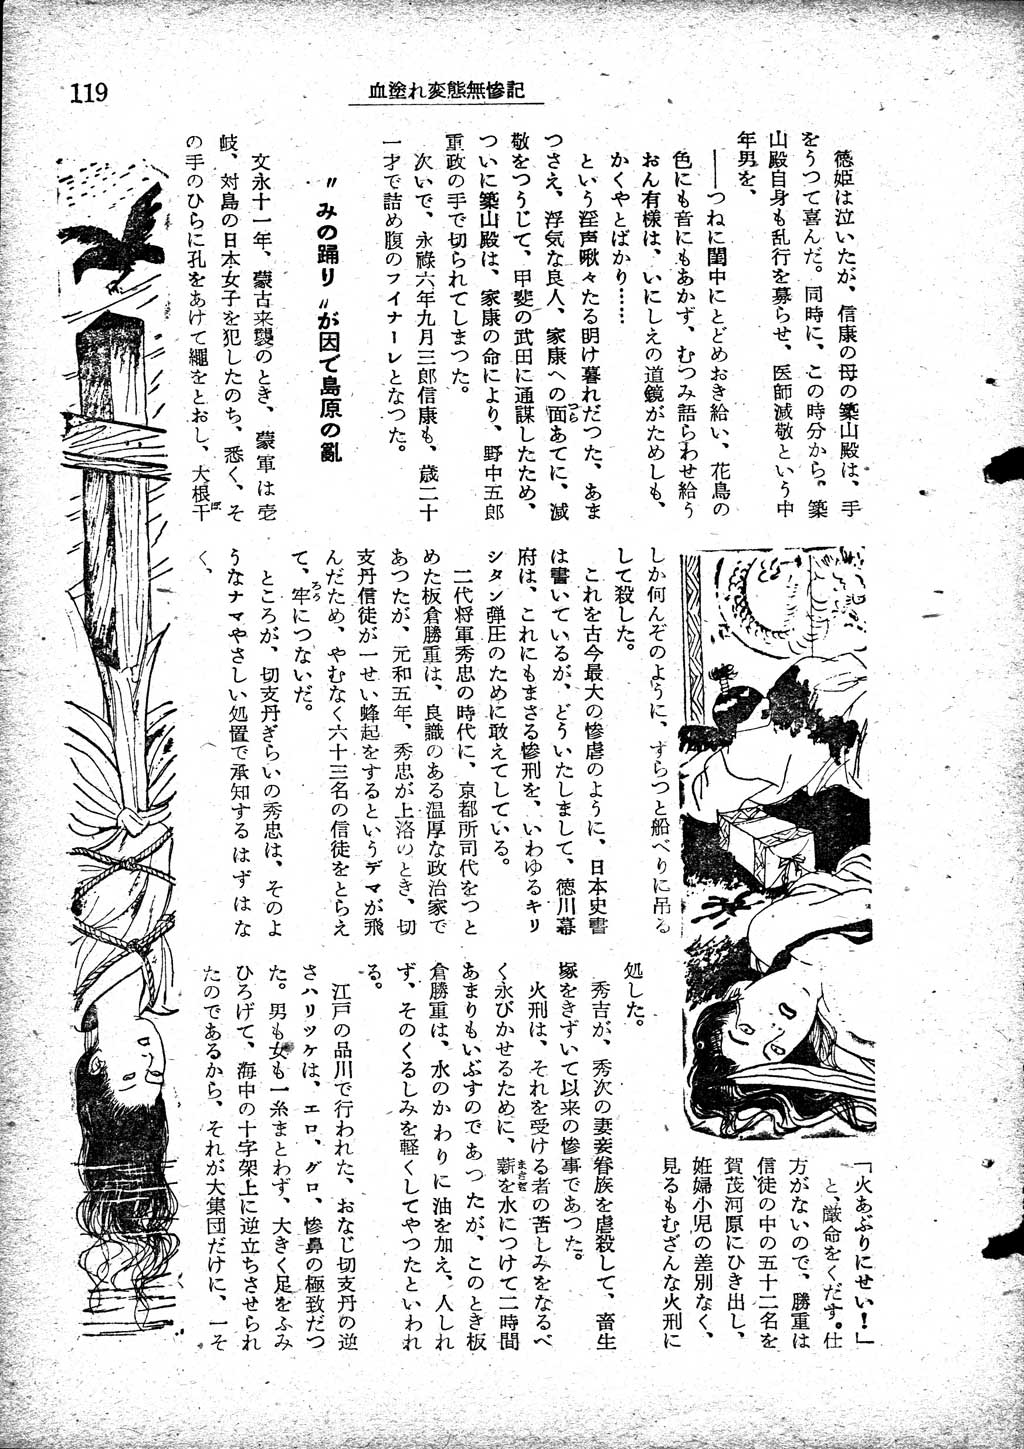 119
血塗れ変態無惨記
徳姫は泣いたが、信康の母の築山殿は、手
をうつて喜んだ。同時に、この時分から、築
山殿自身も乱行を募らせ、医師減敬という中
年男を、
――つねに閨中にとどめおき給い、花鳥の
色にも音にもあかず、むつみ語らわせ給う
おん有様は、いにしえの道鏡がためしも、
かくやとばかり……
という淫声啾々たる明け暮れだつた、あま
つさえ、浮気な良人、家康への面あてに、減
敬をつうじて、甲斐の武田に通謀したため、
ついに築山殿は、家康の命により、野中五郎
重政の手で切られてしまつた。
次いで、永禄六年九月三郎信康も、歳二十
一才で詰め腹のフイナーレとなつた。
〃みの踊り〃が因で島原の亂
文永十一年、蒙古来襲のとき、蒙軍は壱
岐、対島の日本女子を犯したのち、悉く、そ
の手のひらに孔をあけて縄をとおし、大根干
しか何んぞのように、ずらつと船べりに吊る
して殺した。
これを古今最大の惨虐のように、日本史書
は書いているが、どういたしまして、徳川幕
府は、これにもまさる惨刑を、いわゆるキリ
シタン弾圧のために敢えてしている。
二代将軍秀忠の時代に、京都所司代をつと
めた板倉勝重は、良識のある温厚な政治家で
あつたが、元和五年、秀忠が上洛のとき、切
支丹信徒が一せい蜂起をするというデマが飛
んだため、やむなく六十三名の信徒をとらえ
て、牢につないだ。
ところが、切支丹ぎらいの秀忠は、そのよ
うなナマやさしい処置で承知するはずはな
く、
「火あぶりにせい！」
と、厳命をくだす。仕
方がないので、勝重は
信徒の中の五十二名を
賀茂河原にひき出し、
妊婦小児の差別なく、
見るもむざんな火刑に
処した。
秀吉が、秀次の妻妾眷族を虐殺して、畜生
塚をきずいて以来の惨事であつた。
火刑は、それを受ける者の苦しみをなるべ
く永びかせるために、薪を水につけて二時間
あまりもいぶすのであつたが、このとき板
倉勝重は、水のかわりに油を加え、人しれ
ず、そのくるしみを軽くしてやつたといわれ
る。
江戸の品川で行われた、おなじ切支丹の逆
さハリツケは、エロ、グロ、惨鼻の極致だつ
た。男も女も一糸まとわず、大きく足をふみ
ひろげて、海中の十字架上に逆立ちさせられ
たのであるから、それが大集団だけに、一そ